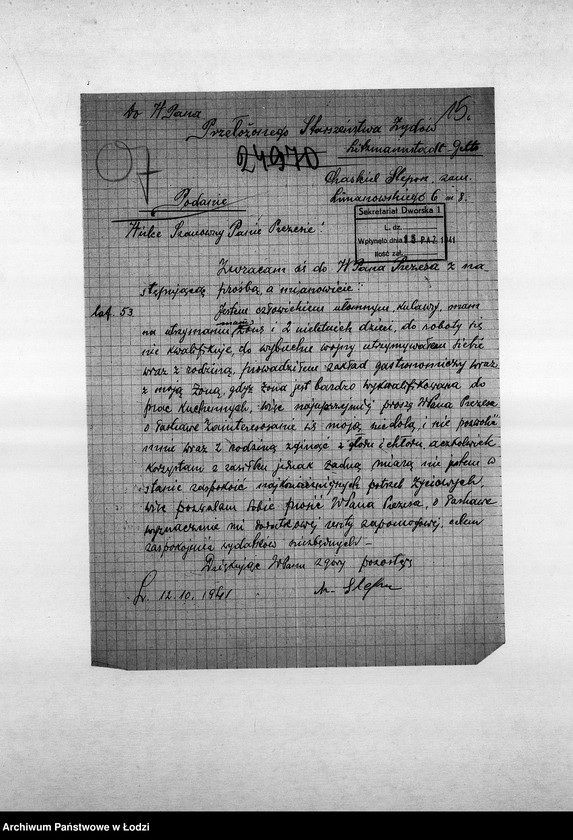 Do WPana
15.
Przełożonego Starszeństwa Żydów
24970
Litzmannstadt-Getto
Chaskiel Slepon, zam.
Limanowskiego 6 m 8.
Podanie
Sekretariat Dworska 1
L. dz.
Wpłynęło dnia 15 PAZ. 1941
Ilość zał.
Wielce Szanowny Panie Prezesie!
Zwracam się do WPana Prezesa z na
stępującą prośbą, a mianowicie:
lat. 53.
Jestem człowiekiem ułomnym, kulawy, mam
na utrzymaniu żonę i 2 nieletnich dzieci, do roboty się
nie kwalifikuję, do wybuchu wojny utrzymywałem siebie
wraz z rodziną, prowadziłem zakład gastronomiczny wraz
z moją żoną, gdyż żona jest bardzo wykwalifikowana do
prac kuchennych, więc najuprzejmiej proszę WPana Prezesa
o łaskawe zainteresowanie się moją niedolą, i nie pozwolić
mnie wraz z rodziną zginąć z głodu i chłodu, aczkolwiek
korzystam z zasiłku jednak żadną miarą nie jestem w
stanie zaspokoić najkonieczniejszych potrzeb życiowych,
więc pozwalam sobie prosić WPana Prezesa, o łaskawe
wyznaczenie mi dodatkowej renty zapomogowej, celem
zaspokojenia wydatków niezbędnych.-
Dziękując WPanu z góry pozostaję
Ł. 12.10.1941
Archiwum Państwowe w Łodzi